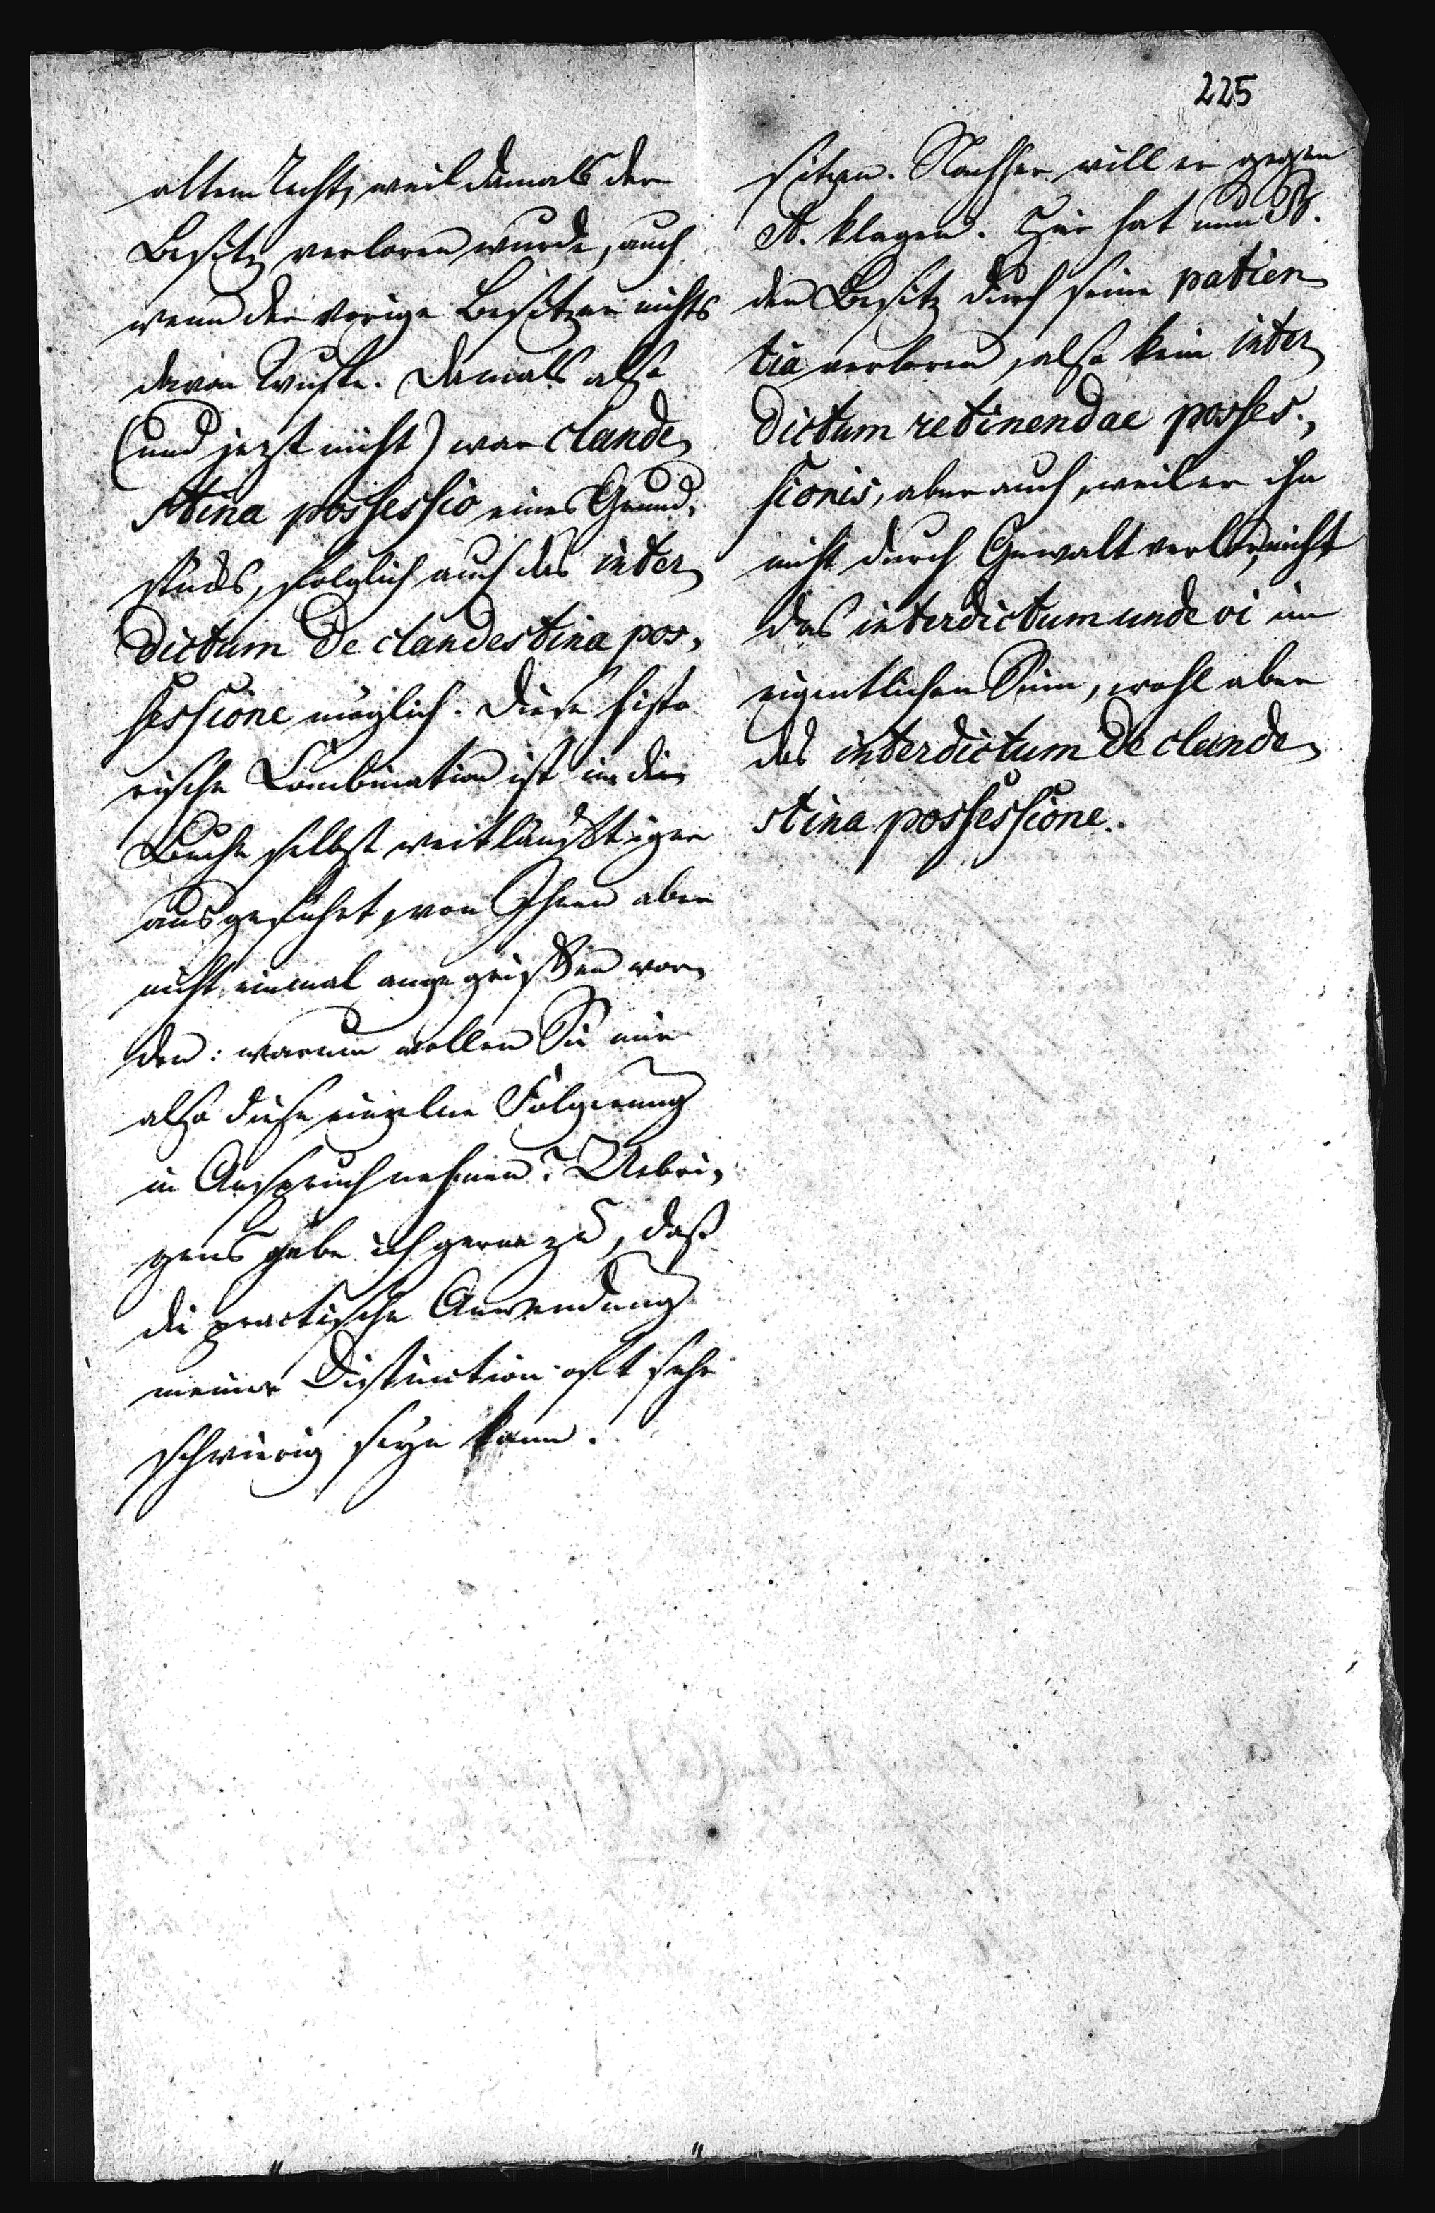 225
altem Recht, weil damals der
Besitz verloren wurde, auch
wenn der vorige Besitzer nichts
davon wuste. Damals also
(und jezt nicht) war clande
stina possessio eines Grund-
stücks, folglich auch das inter
dictum de clandestina pos-
sessione möglich. Diese histo
rische Combination ist in dem
Buche selbst weitläuftiger
ausgeführt, von Ihnen aber
nicht einmal angegriffen wor-
den: warum wollen Sie mir
also diese einzelne Folgerung
in Anspruch nehmen? Uebri-
gens gebe ich gerne zu, daß
die practische Anwendung
meiner Distinction oft sehr
schwierig seyn kann.
sitzen. Nachher will er gegen
A. klagen. Hier hat nun B.
den Besitz durch seine patien
tia verloren, also kein inter
dictum retinendae posses-
sionis, aber auch, weil er ihn
nicht durch Gewalt verlor, nicht
das interdictum unde vi im
eigentlichen Sinn, wohl aber
das interdictum de clande
stina possessione.